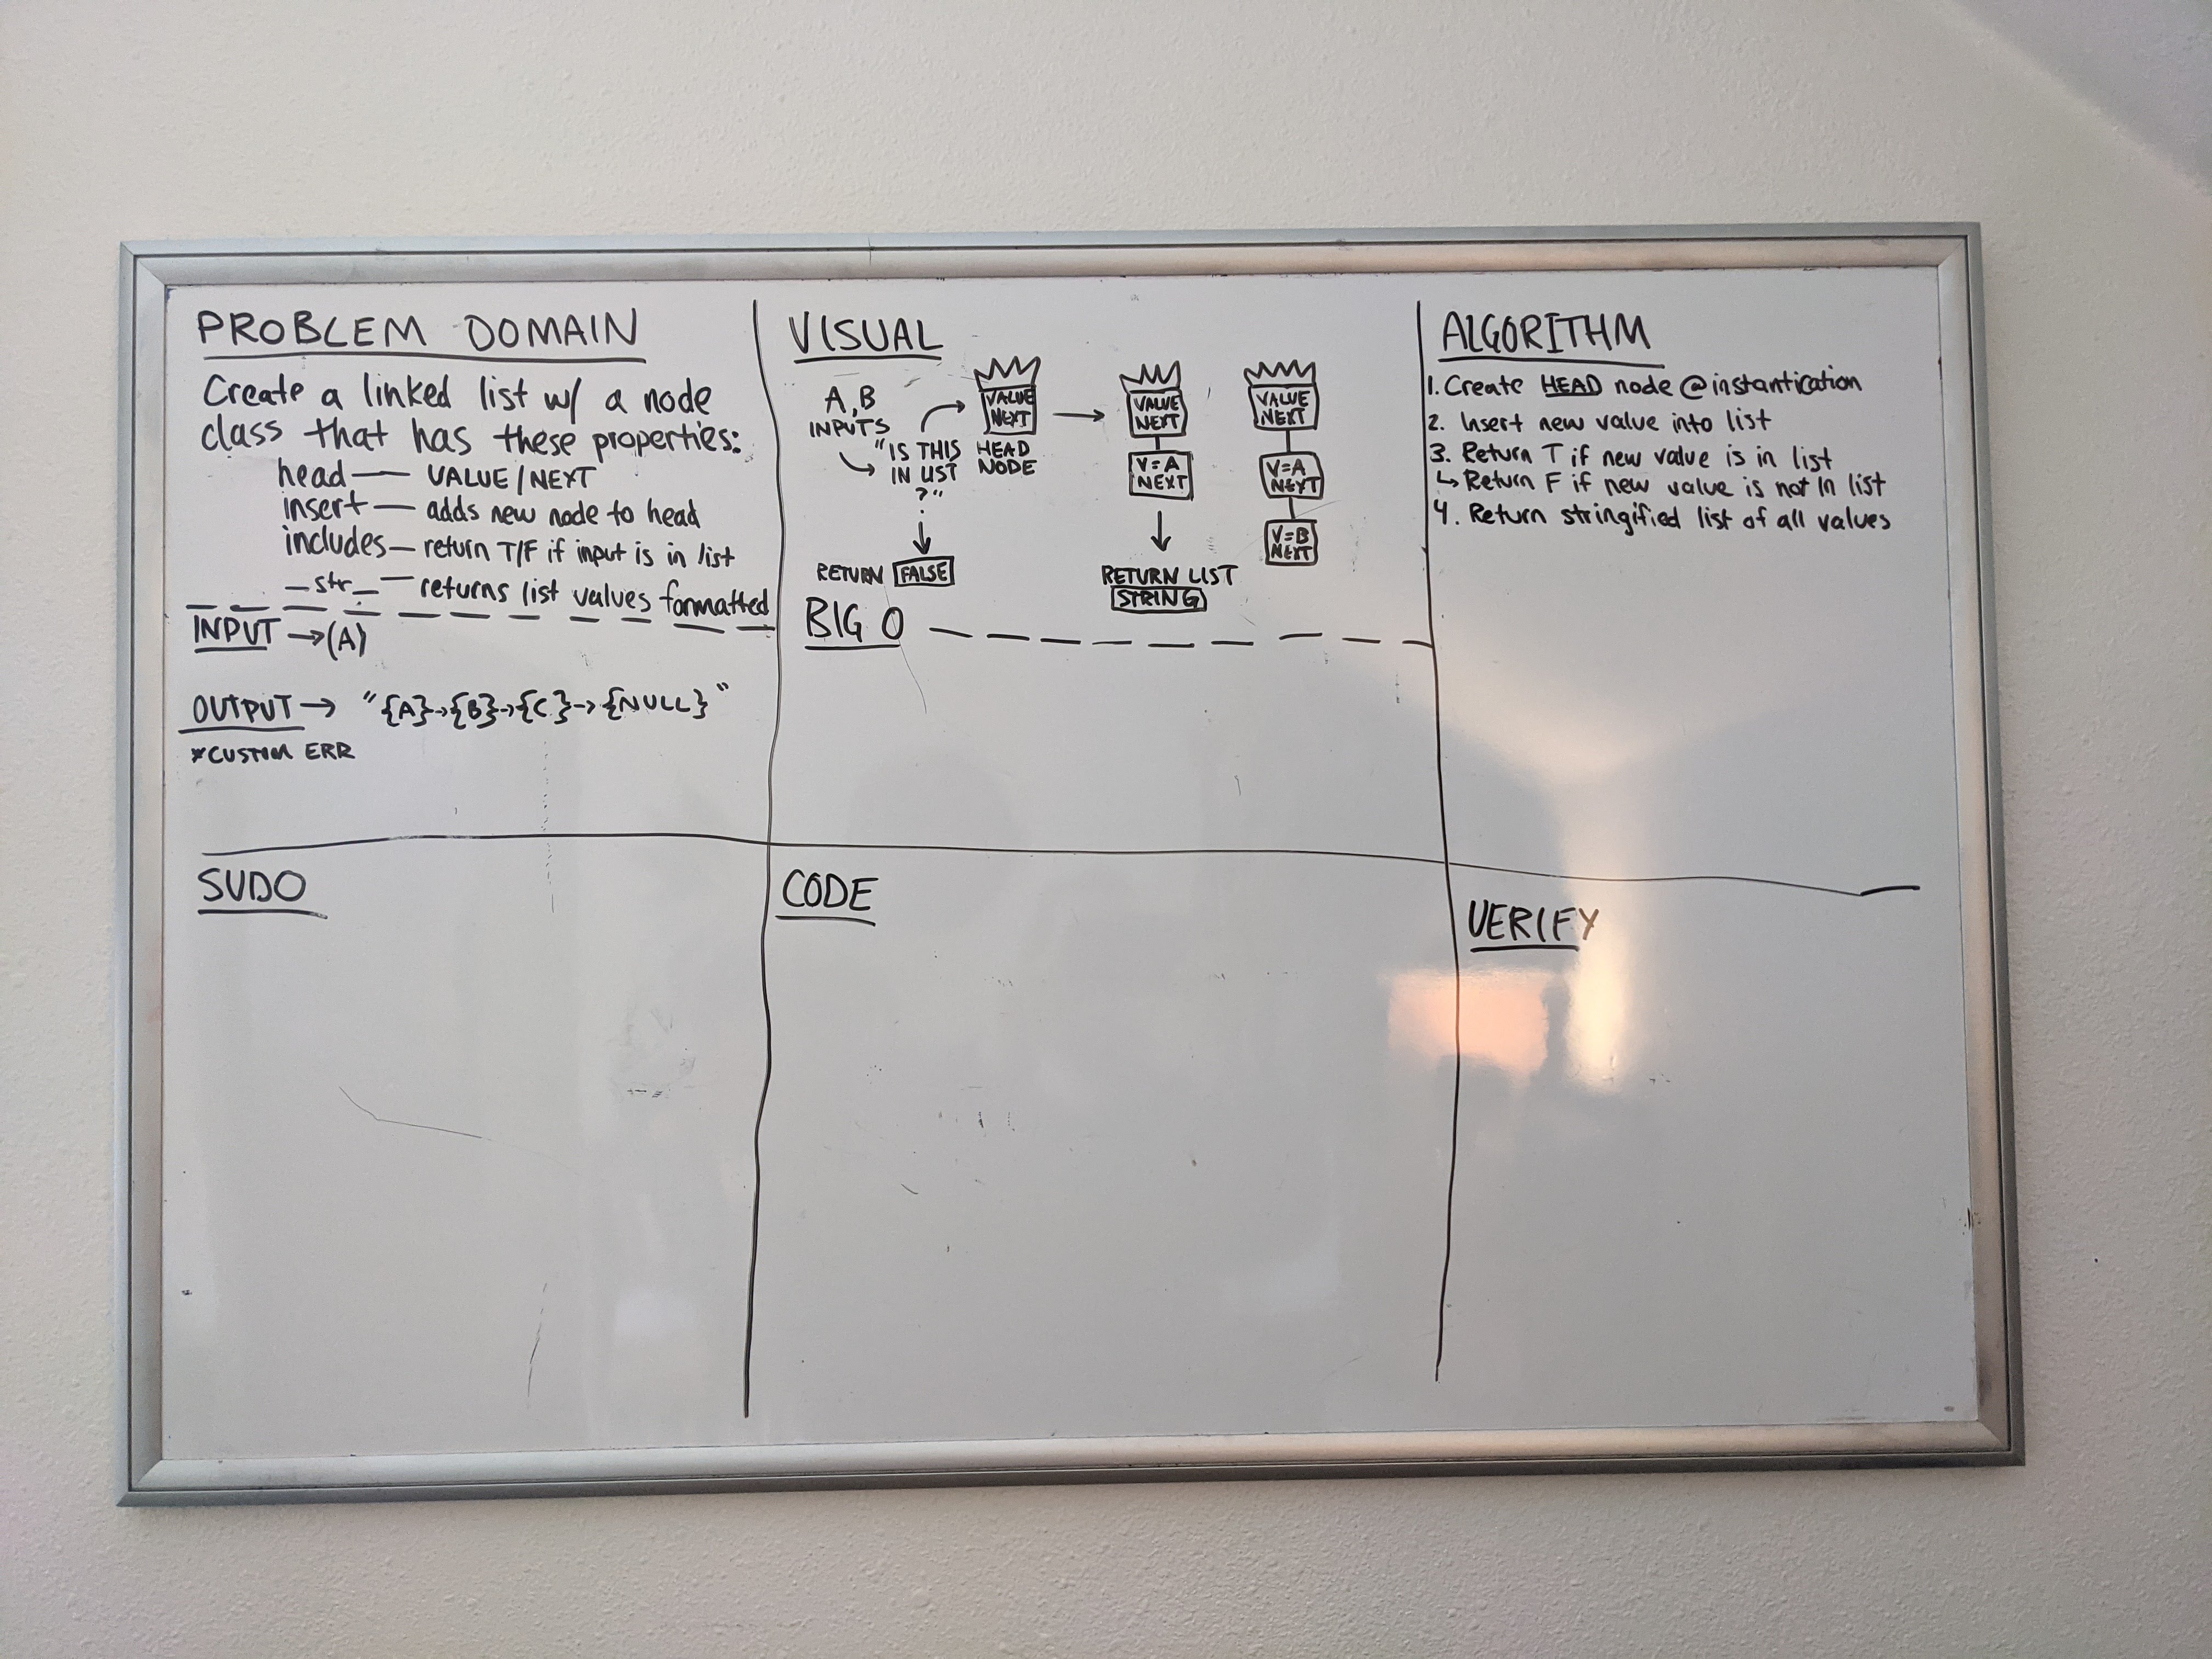 PROBLEM DOMAIN
Create a linked list w/ a node
class that has these properties:
head — VALUE/NEXT
insert — adds new node to head
includes — return T/F if input is in list
_str_ — returns list values formatted
INPUT → (A)
OUTPUT → "{A}→{B}→{C}→{NULL}"
*CUSTOM ERR
VISUAL
A, B
INPUTS
"IS THIS
IN LIST
?"
RETURN FALSE
VALUE
NEXT
HEAD
NODE
VALUE
NEXT
V=A
NEXT
RETURN LIST
STRING
VALUE
NEXT
V=A
NEXT
V=B
NEXT
BIG O
ALGORITHM
1. Create HEAD node @instantication
2. Insert new value into list
3. Return T if new value is in list
↳ Return F if new value is not in list
4. Return stringified list of all values
SUDO
CODE
VERIFY